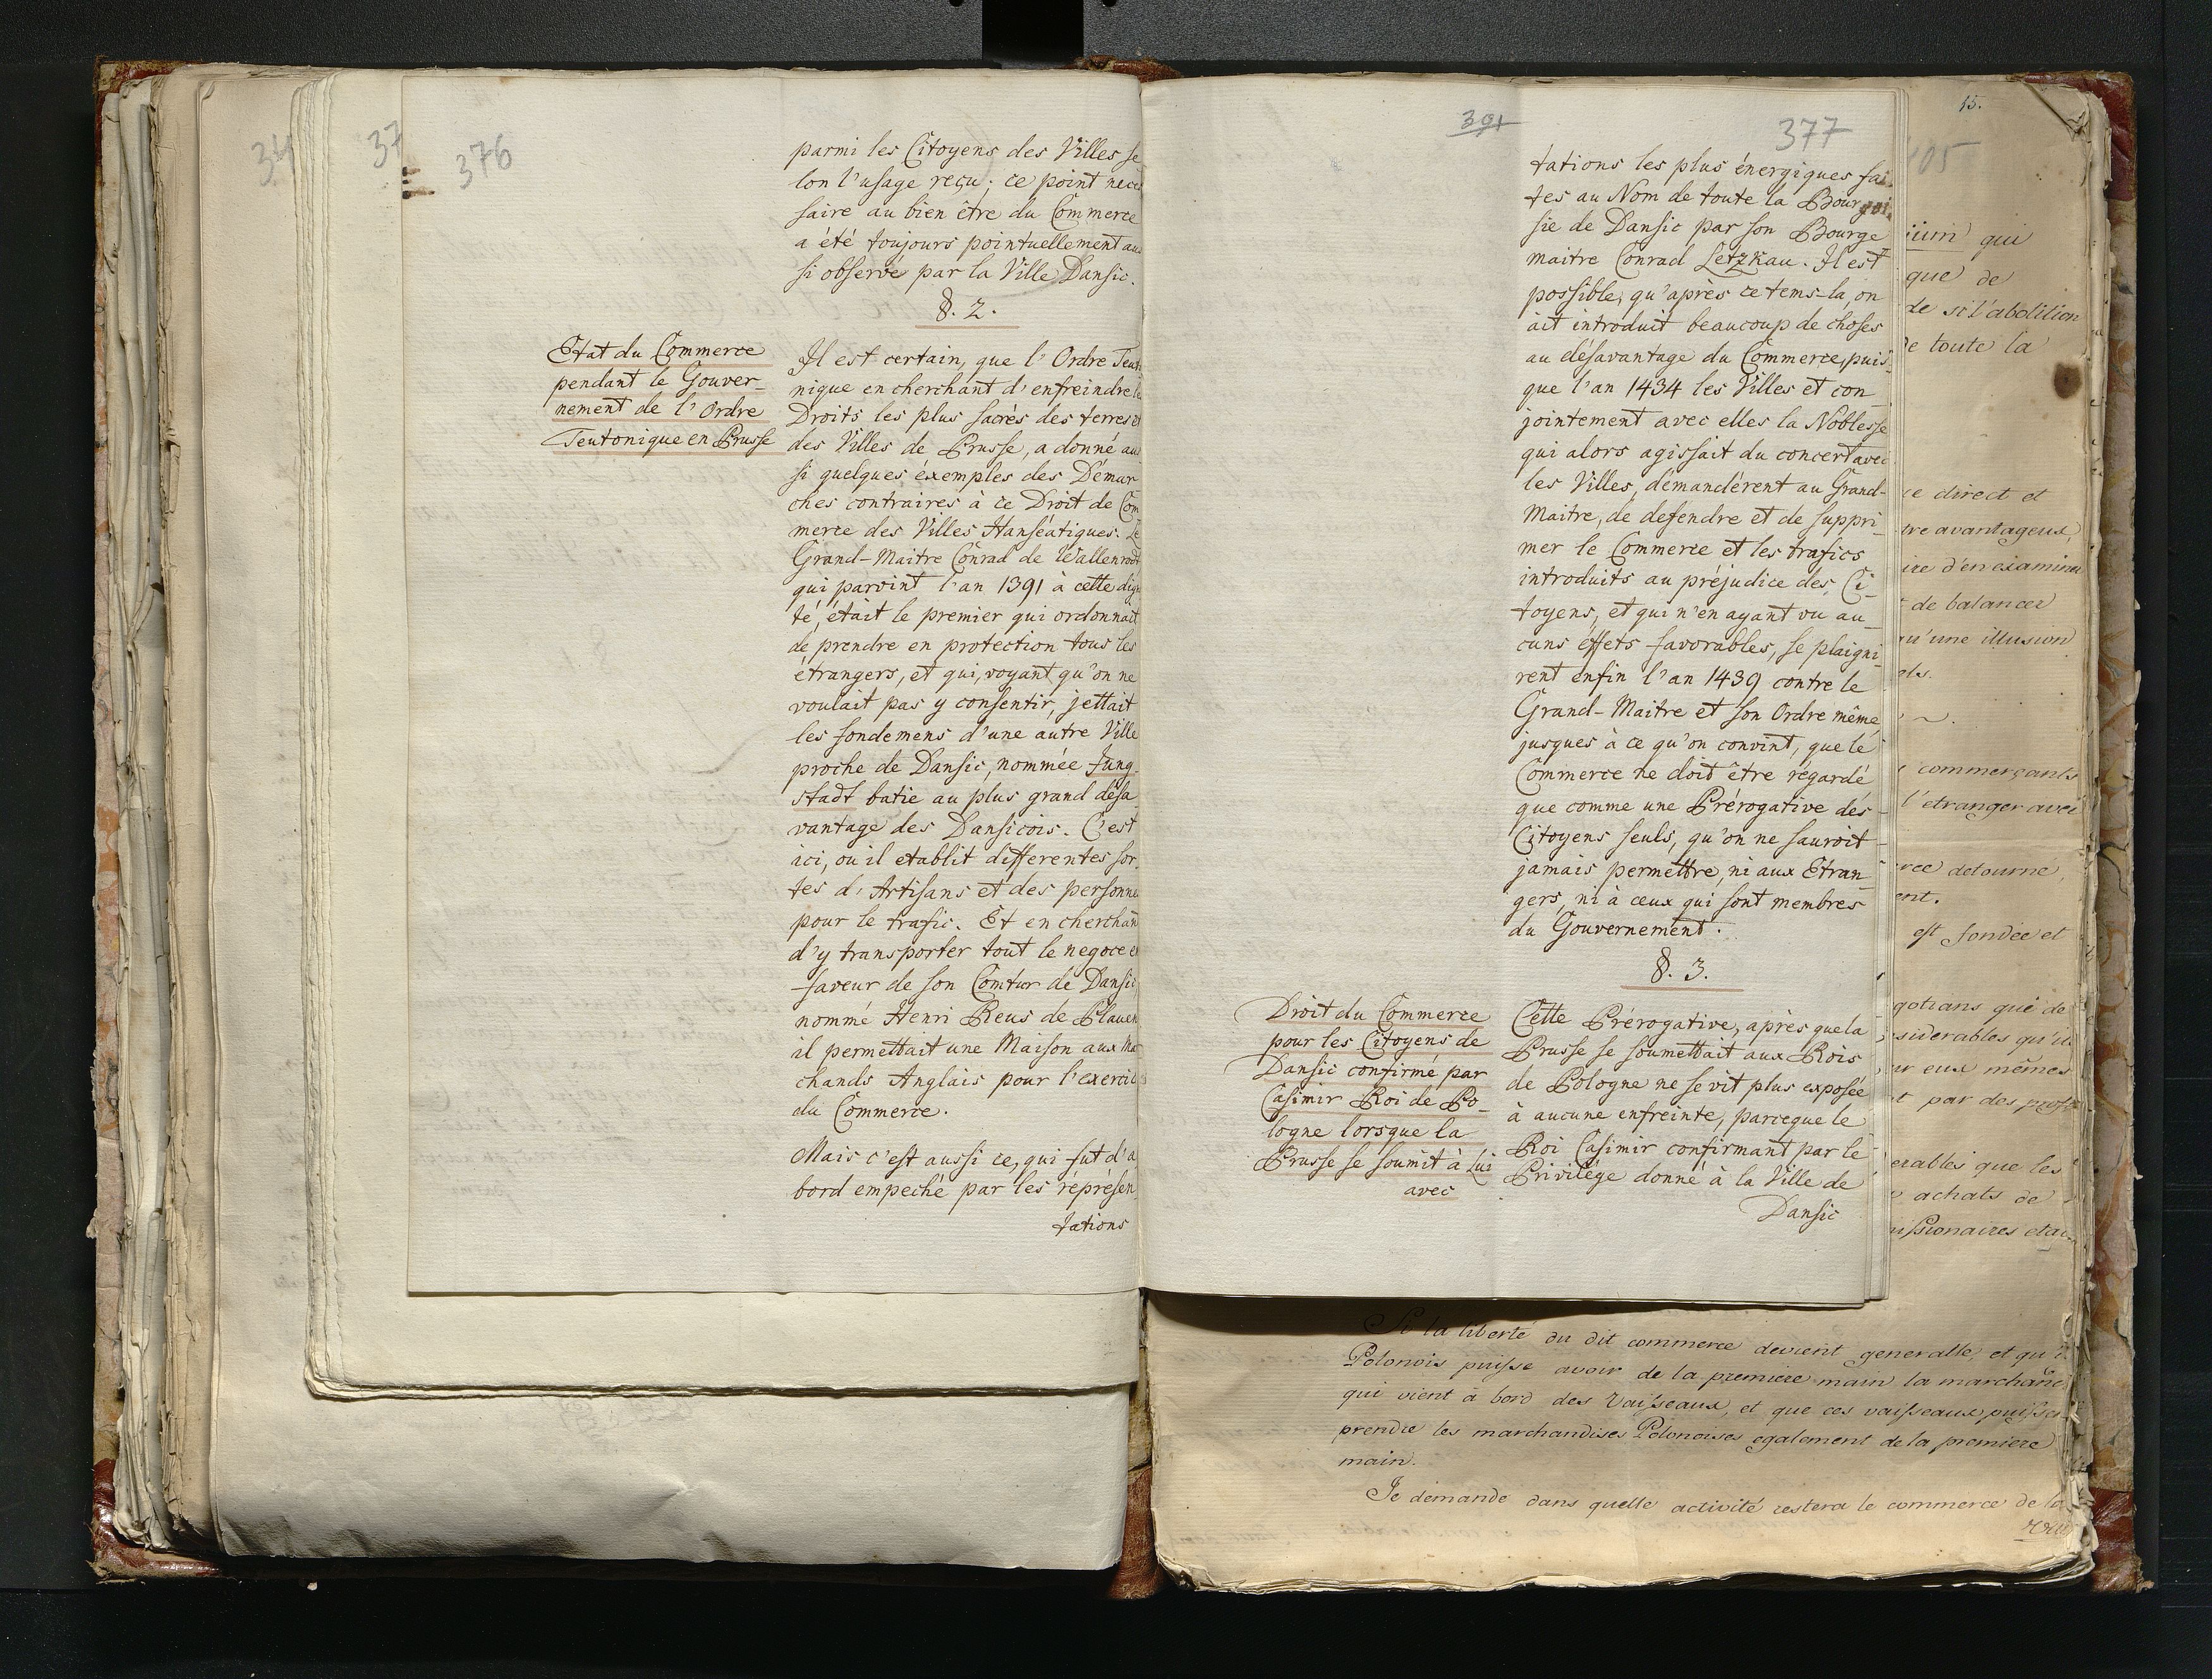 376
parmi les Citoyens des Villes se
lon l'usage reçu; ce point neces
saire au bien être du Commerce
a été toujours pointuellement aus
si observé par la Ville Dansic.
§. 2.
Etat du Commerce
pendant le Gouver-
nement de l'Ordre
Teutonique en Prusse
Il est certain, que l'Ordre Teut
nique en cherchant d'enfreindre le
Droits les plus sacrés des terres et
des Villes de Prusse, a donné au
si quelques éxemples des Démar
ches contraires à ce Droit de Com
merce des Villes Hanséatiques. Le
Grand-Maitre Conrad de Wallenrodt
qui parvint l'an 1391 à cette dign
té, était le premier qui ordonnait
de prendre en protection tous les
étrangers, et qui, voyant qu'on ne
voulait pas y consentir, jettait
les fondemens d'une autre Ville
proche de Dansic, nommée Jung
stadt batie au plus grand désa
vantage des Dansicois. C'est
ici, ou il etablit differentes sor
tes d'Artisans et des personne
pour le trafic. Et en cherchant
d'y transporter tout le negoce en
faveur de son Comtur de Dansic,
nommé Henri Reus de Plauen
il permettait une Maison aux Mar
chands Anglais pour l'exercice
du Commerce.
Mais c'est aussi ce, qui fut d'a
bord empeché par les réprésen
tations
391
377
tations les plus énergiques fai-
tes au Nom de toute la Bourgoi
sie de Dansic par son Bourge
maitre Conrad Letzkau. Il est
possible, qu'après ce tems-la, on
ait introduit beaucoup de choses
au désavantage du Commerce, puis-
que l'an 1434 les Villes et con-
jointement avec elles la Noblesse
qui alors agissait du concert avec
les Villes, démandérent au Grand-
Maitre, de defendre et de suppri-
mer le Commerce et les trafics
introduits au préjudice des Ci-
toyens, et qui n'en ayant vu au-
cuns effets favorables, se plaigni-
rent enfin l'an 1439 contre le
Grand-Maitre et son Ordre même,
jusques à ce qu'on convint, que le
Commerce ne doit être régardé
que comme une Prérogative des
Citoyens seuls, qu'on ne sauroit
jamais permettre, ni aux Etran-
gers, ni à ceux qui sont membres
du Gouvernement.
§. 3.
Droit du Commerce
pour les Citoyens de
Dansic confirmé par
Casimir Roi de Po-
logne lorsque la
Prusse se soumit à Lui
avec
Cette Prérogative, après que la
Prusse se soumettait aux Rois
de Pologne ne se vit plus exposée
à aucune enfreinte, parceque le
Roi Casimir confirmant par le
Privilége donné à la Ville de
Dansic
15.
105
qui
que de
de si l'abolition
de toute la
ce direct et
tre avantageux,
ire d'en examiner
de balancer
qu'une illusion
commerçants
l'etranger avec
detourné,
ent.
est fondée et
gotians que de
siderables qu'il
ur eux mêmes
t par des
erables que les
achats de
Si la liberté du dit commerce devient generalle, et qu'
Polonois puisse avoir de la premiere main la marchand
qui vient à bord des Vaisseaux, et que ces vaisseaux puisse
prendre les marchandises Polonoises egalement de la premiere
main.
Je demande dans quelle activité restera le commerce de la